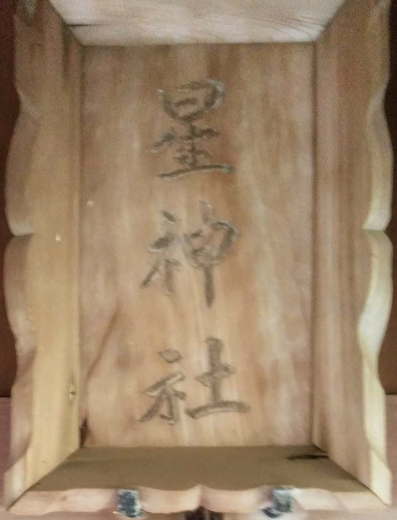 星神社